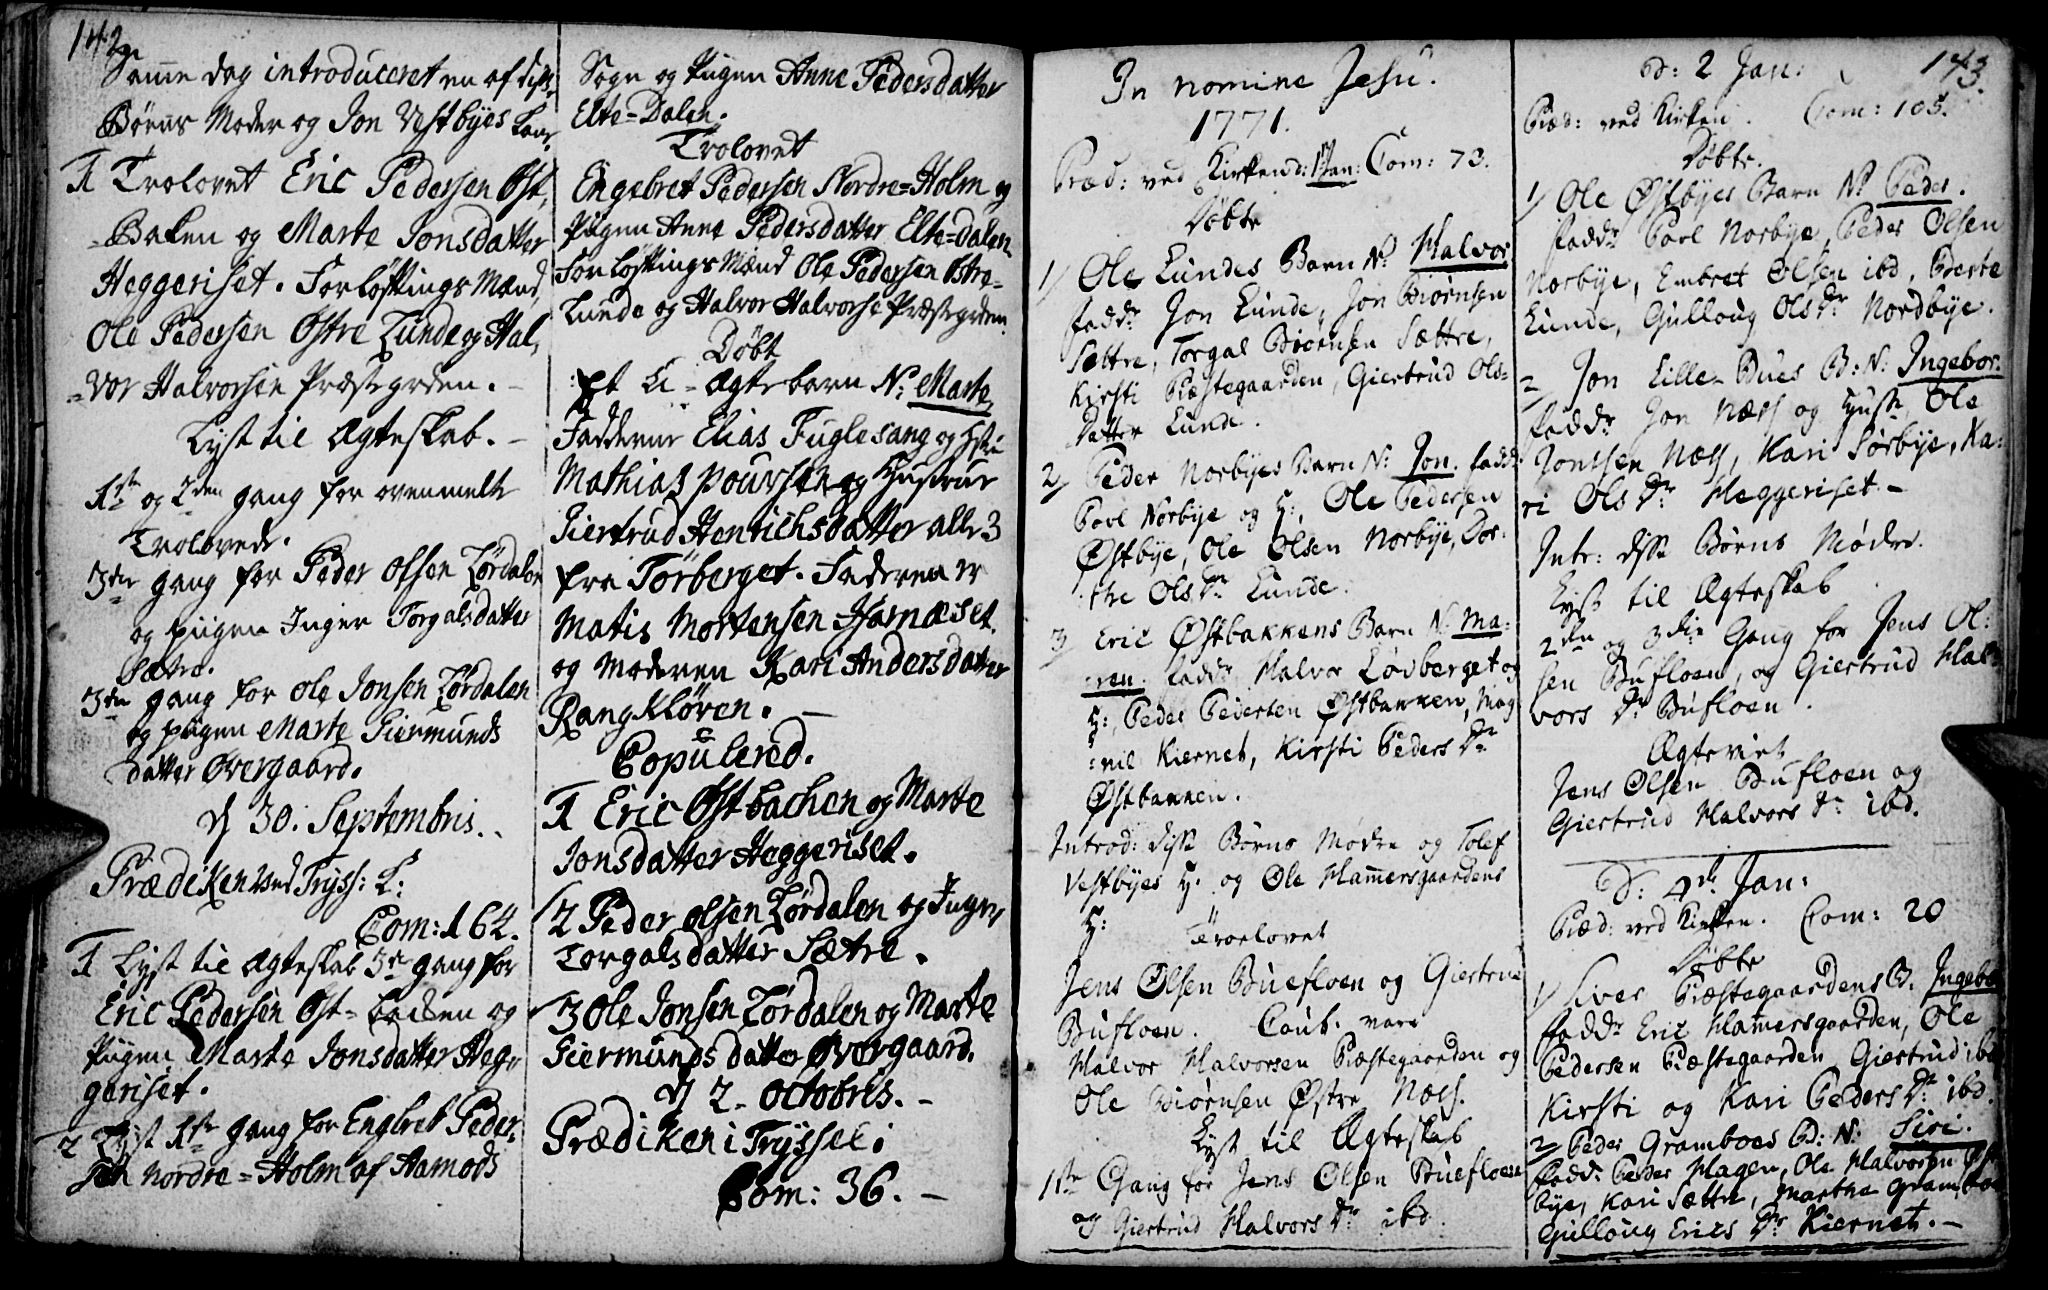 142.
Samme dag introduceret en af disse
Børns Moder og Jon Vestbyes Kone
1 Trolovet Eric Pedersen Øst,
-Baken og Marte Jonsdatter
Heggeriset. Forløftings Mænd,
Ole Pedersen Østre Lunde og Hal,
=vor Halvorsen Præstegrden. -
Lyst til Ægteskab. -
1ste og 2den gang for ovenmelte
Trolovede.
3die gang for Peder Olsen Lørdalen
og pigen Inger Torgalsdatter
Sætre.
3die gang for Ole Jonsen Lørdalen
og pigen Marte Giermunds
datter Øvergaard.
d 30. Septembris.
Prædiken ved Tryss: K:
Com: 164.
1 Lyst til Ægteskab 3die gang for
Eric Pedersen Øst-backen og
Pigen Marte Jonsdatter Heg-
geriset.
2 Lyst 1ste gang for Engbret Peder-
sen Nordre-Holm af Aamods
Sogn og Pigen Anne Pedersdatter
Elte-Dalen.
Trolovet
Engebret Pedersen Nordre-Holm og
Pigen Anne Pedersdatter Elte-Dalen.
Forløftings Mænd Ole Pedersen Østre-
Lunde og Halvor Halvorse Præstegrden.
Døbt
Et U-Ægte barn N: Marte,
Fadderne Elias Fuglesang og
Mathias Pouvsen og Hustrue
Giertrud Henrichsdatter alle 3
fra Törberget. Faderen er
Matis Mortensen Hornæset.
og Moderen Kari Andersdatter
Rangkløven. -
Copulered.
1 Eric Østbachen og Marte
Jonsdatter Heggeriset.
2 Peder Olsen Lørdalen og Inger
Torgalsdatter Sætre.
3 Ole Jonsen Lørdalen og Marte
Giermunds datter Øvergaard.
d 2. Octobris. -
Prædiken i Tryssel:
Com: 36. -
In nomine Jesu.
1771.
Præd: ved Kirken d: 1 Jan: Com: 73.
Døbte
1) Ole Lundes Barn N: Halvor
fadd: Jon Lunde, Jon Biørnsen
Sættre, Torgal Biørnsen Sættre,
Kirsti Præstegaarden, Giertrud Ols-
Datter Lunde.
2) Peder Norbyes Barn N: Jon. fadd:
Povl Norbye og H:, Ole Pedersen
Østbye, Ole Olsen Norbye, Dor:
the Ols Dr Lunde.
3) Eric Østbakkens Barn N: Ma:
:ren. fadd: Halvor Lødberget og
H:, Peder Pedersen Østbakken, Mag
:nil Kiernet, Kirsti Peders Dr
Østbakken.
Introd: disse Børns Mødre og Tolef
Vestbyes H. og Ole Hammersgaardens
H:
Troelovet
Jens Olsen Buefloen og Giertrud
Bufloen. Caut. vare
Halvor Halvorsen Præstegaarden og
Ole Biørnsen Østre Næss.
Lyst til Ægteskab
1ste Gang for Jens Olsen Buefloen
og Giertrud Halvors Dr ibd.
143.
D: 2 Jan:
Præd: ved Kirken. Com: 105.
Døbte.
1) Ole Østbyes Barn N: Peder.
fadd: Povl Norbye, Peder Olsen
Norbye, Embret Olsen ibd, Berte
Lunde, Gulloug Ols Dr Nordbye.
2) Jon Lille-Bues B: N: Ingebor.
fadd: Jon Næss og Hustr, Ole
Jonssen Næss, Kari Sørbye, Ka:
ri Ols Dr Heggeriset. -
Intr: disse Børns Mødre.
Lyst til Ægteskab
2den og 3die Gang for Jens Ol:
sen Bufloen, og Giertrud Hal:
vors Dr Bufloen.
Ægteviet
Jens Olsen Bufloen og
Giertrud Halvors Dr ibd.
D: 4de Jan:
Præd: ved Kirken. Com: 20
Døbte
1) Siver Præstegaardens B. Ingebor
fadd: Eric Hammersgaarden, Ole
Pedersen Præstegaarden, Giertrud ibd
Kirsti og Kari Peders Dr ibd.
2) Peder Gramboes B: N: Siri.
fadd: Peder Hagen, Ole Halvorsen Øst
bye, Kari Sættre, Marthe Gramboe
Gulloug Erics Dr Kiernet. -